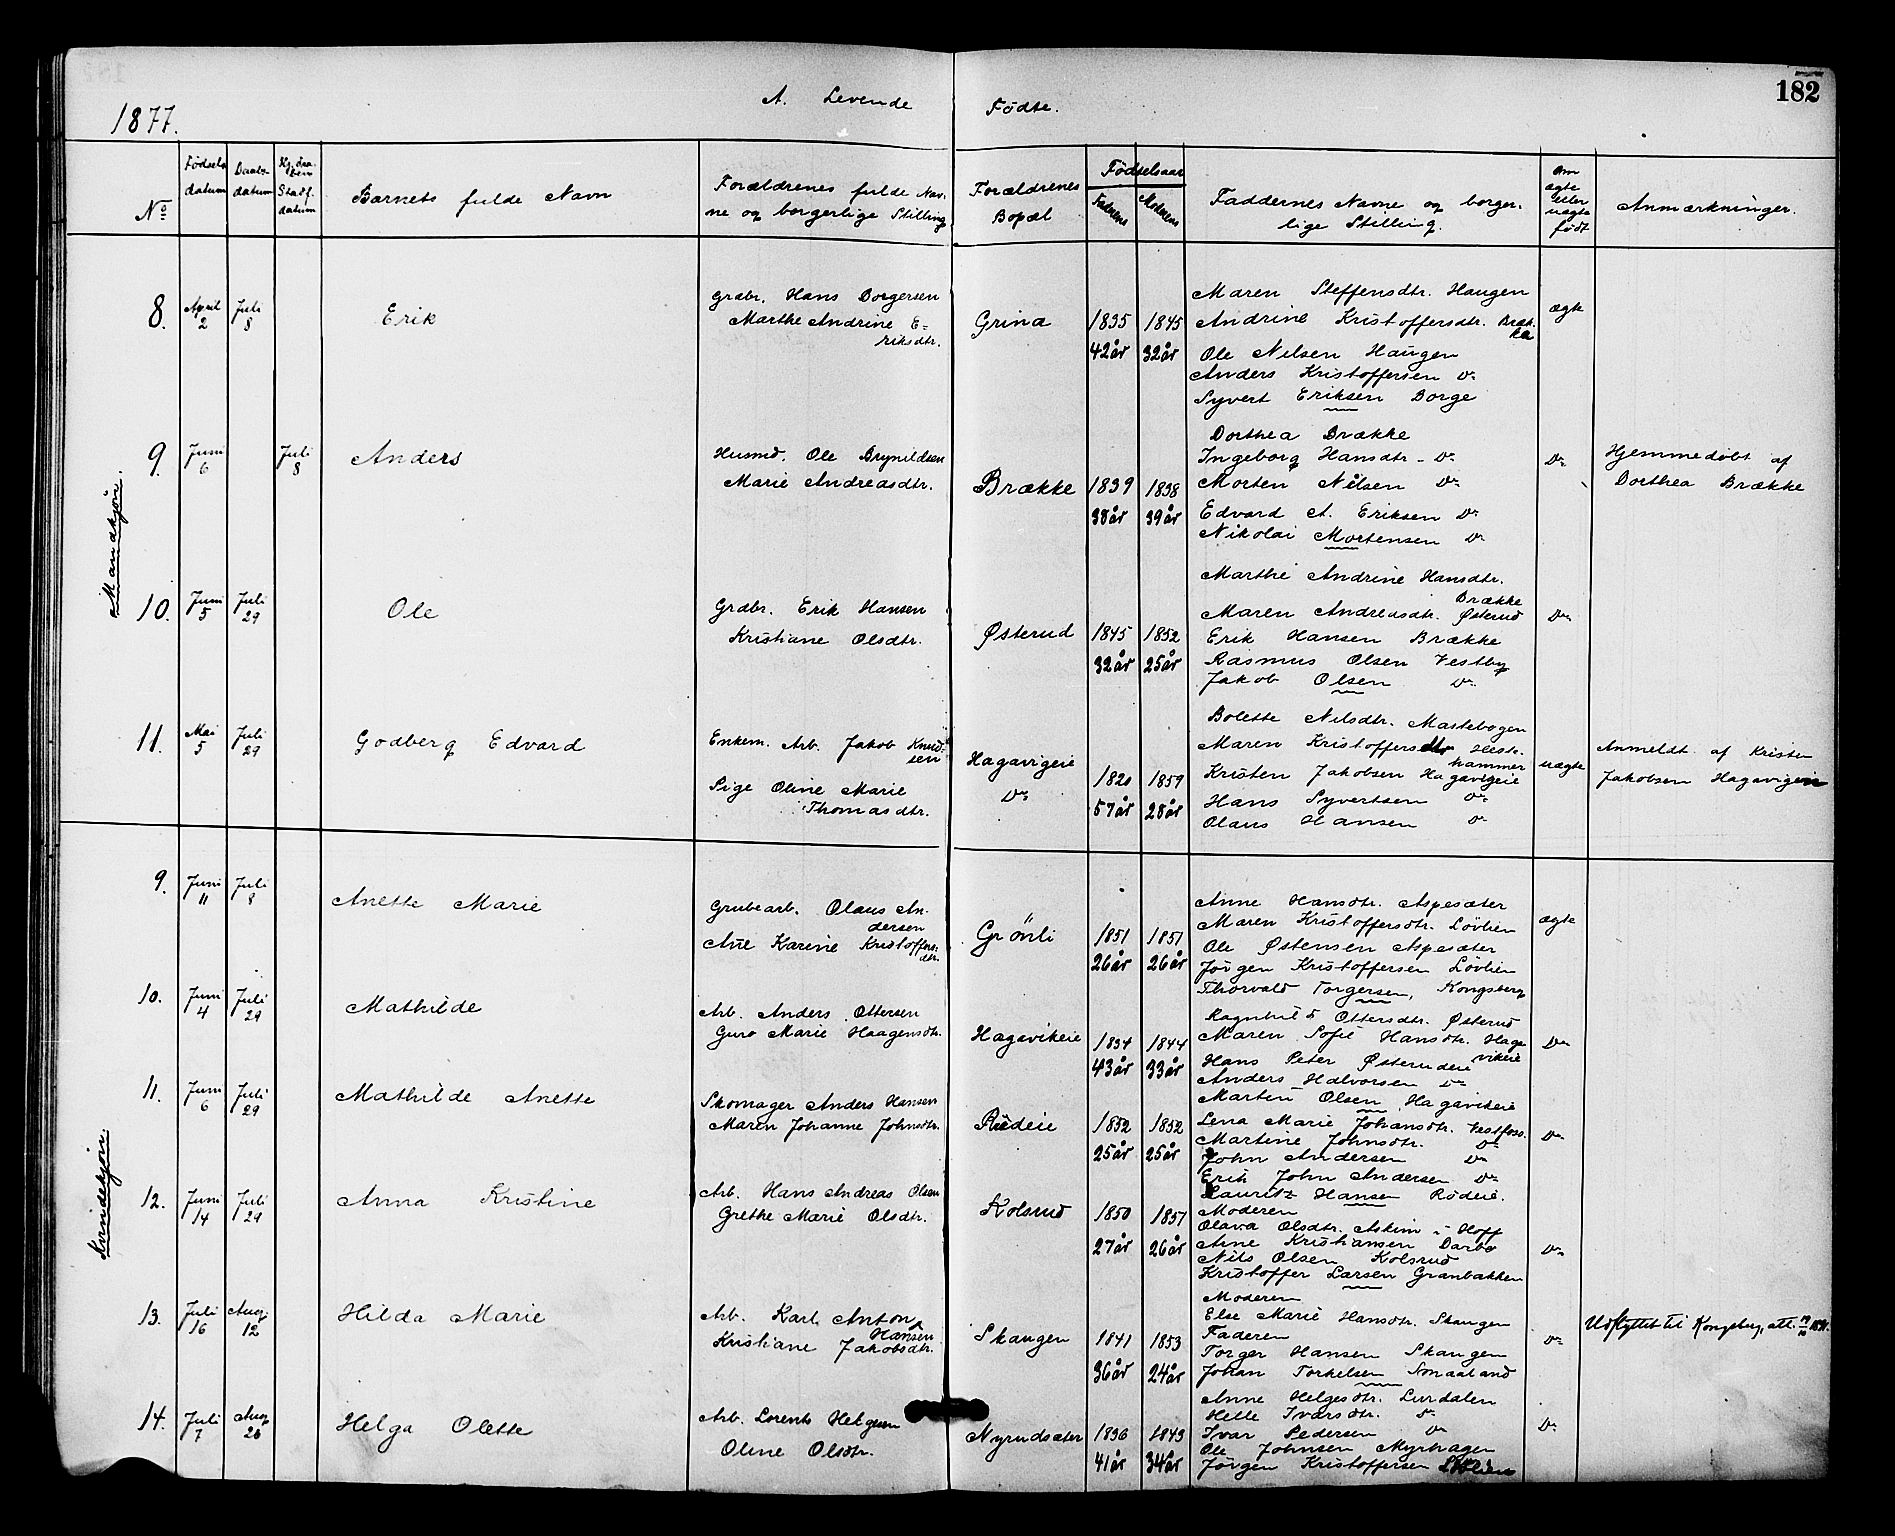 182
1877.
A. Levende Fødte.
No
Fødsels datum
Daabs-datum
Stadf. datum
Barnets fulde Navn
Forældrenes fulde Nav-
ne og borgerlige Stilling
Forældrenes
Bopæl
Fødselsaar
Faderens
Moderens
Faddernes Navne og borger-
lige Stilling.
Om ægte eller uægte født
Anmærkninger.
Mandkjøn.
8.
April 2
Juli 8
Erik
Grbr. Hans Borgersen
Marthe Andrine E-
riksdtr.
Grina
1835 1845
42år 32år
Maren Steffensdtr. Haugen
Andrine Kristoffersdtr. Bræk-
ke
Ole Nilsen Haugen
Anders Kristoffersen Do
Syvert Eriksen Borge
ægte
9.
Juni 6
Juli 8
Anders
Husmd. Ole Brynildsen
Marie Andreasdtr.
Brække
1839 1838
38år 39år
Dorthea Brække
Ingeborg Hansdtr - Do
Morten Nilsen Do
Edvard A. Eriksen Do
Nikolai Mortensen Do
Do
Hjemmedøbt af
Dorthea Brække
10.
Juni 5
Juli 29
Ole
Grdbr. Erik Hansen
Kristiane Olsdtr.
Østerud
1845 1852
32år 25år
Marthe Andrine Hansdtr.
Brække
Maren Andreasdtr. Østerud
Erik Hansen Brække
Rasmus Olsen Vestby
Jakob Olsen Do
Do
11.
Mai 5
Juli 29
Godberg Edvard
Enkem. Arb. Jakob Knud-
sen
Pige Oline Marie
Thomasdtr.
Hagavigeie
Do
1820 1859
57år 28år
Bolette Nilsdtr. Mastebogen
Maren Kristoffersdtr Heste-
hammer
Kristen Jakobsen Hagavigeie
Hans Syvertsen Do
Olaus Hansen Do
uægte
Anmeldt af Kristen
Jakobsen Hagavigeie
Kvindekjøn.
9.
Juni 11
Juli 8
Anette Marie
Grubearb. Olaus An-
dersen
Ane Karine Kristoffers-
dtr.
Grönli
1851 1851
26år 26år
Anne Hansdtr. Aspesæter
Maren Kristoffersdtr. Løvlien
Ole Østensen Aspesæter
Jörgen Kristoffersen Løvlien
Thorvald Torgersen, Kongsberg
ægte
10.
Juni 4
Juli 29
Mathilde
Arb. Anders Ottersen
Guro Marie Haagensdtr.
Hagavikeie
1834 1844
43år 33år
Ragnhild Ottersdtr. Østerud
Maren Sofie Hansdtr. Haga-
vikeie
Hans Peter Østerudeie
Anders Halvorsen Do
Martin Olsen Hagavikeie
Do
11.
Juni 6
Juli 29
Mathilde Anette
Skomager Anders Hansen
Maren Johanne Johnsdtr.
Rudeie
1852 1852
25år 25år
Lena Marie Johansdtr. Vestfoss.
Martine Johnsdtr. Do
John Andersen Do
Erik John Andersen Do
Lauritz Hansen Rödeie.
Do
12.
Juni 14
Juli 29
Anna Kristine
Arb. Hans Andreas Olsen
Grethe Marie Olsdtr.
Kolsrud
1850 1851
27år 26år
Moderen
Olava Olsdtr. Askim i Hoff
Arne Kristiansen Darbo
Nils Olsen Kolsrud
Kristoffer Larsen Granbakken
Do
13.
Juli 16
Aug. 12
Hilda Marie
Arb. Karl Anton
Hansen
Kristiane Jakobsdtr.
Skaugen
1841 1853
36år 24år
Moderen
Else Marie Hansdtr. Skaugen
Faderen
Torger Hansen Skaugen
Johan Torkelsen
Do
Udflyttet til Kongsberg, att.
14.
Juli 7
Aug 26
Helga Olette
Arb. Lorents Helgesen
Oline Olsdtr.
Nyrudsæter
1836 1843
41år 34år
Anne Helgesdtr. Lurdalen
Helle Ivarsdtr. Do
Ivar Pedersen Do
Ole Johnsen Myrhagen
Jörgen Kristoffersen Løvlien
Do